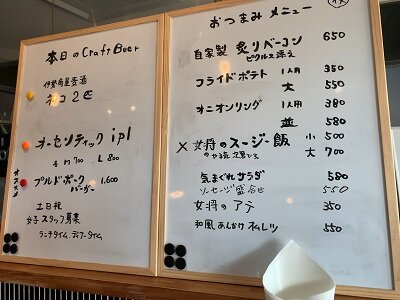 本日のCraft Beer
伊勢角屋麦酒
ネコ2匹
オーセンティック ipl
M 700 . L 800
オススメ
プルドポーク
バーガー 1,600
土日祝
女子スタッフ募集
ランチタイム、ディナータイム
おつまみ メニュー
自家製 炙りベーコン 650
ピクルス添え
フライドポテト 1人用 350
大 550
オニオンリング 1人用 380
並 580
×女将のスージー飯 小 500
大 700
気まぐれサラダ 580
ソーセージ盛合せ 550
女将のアテ 350
和風あんかけオムレツ 550